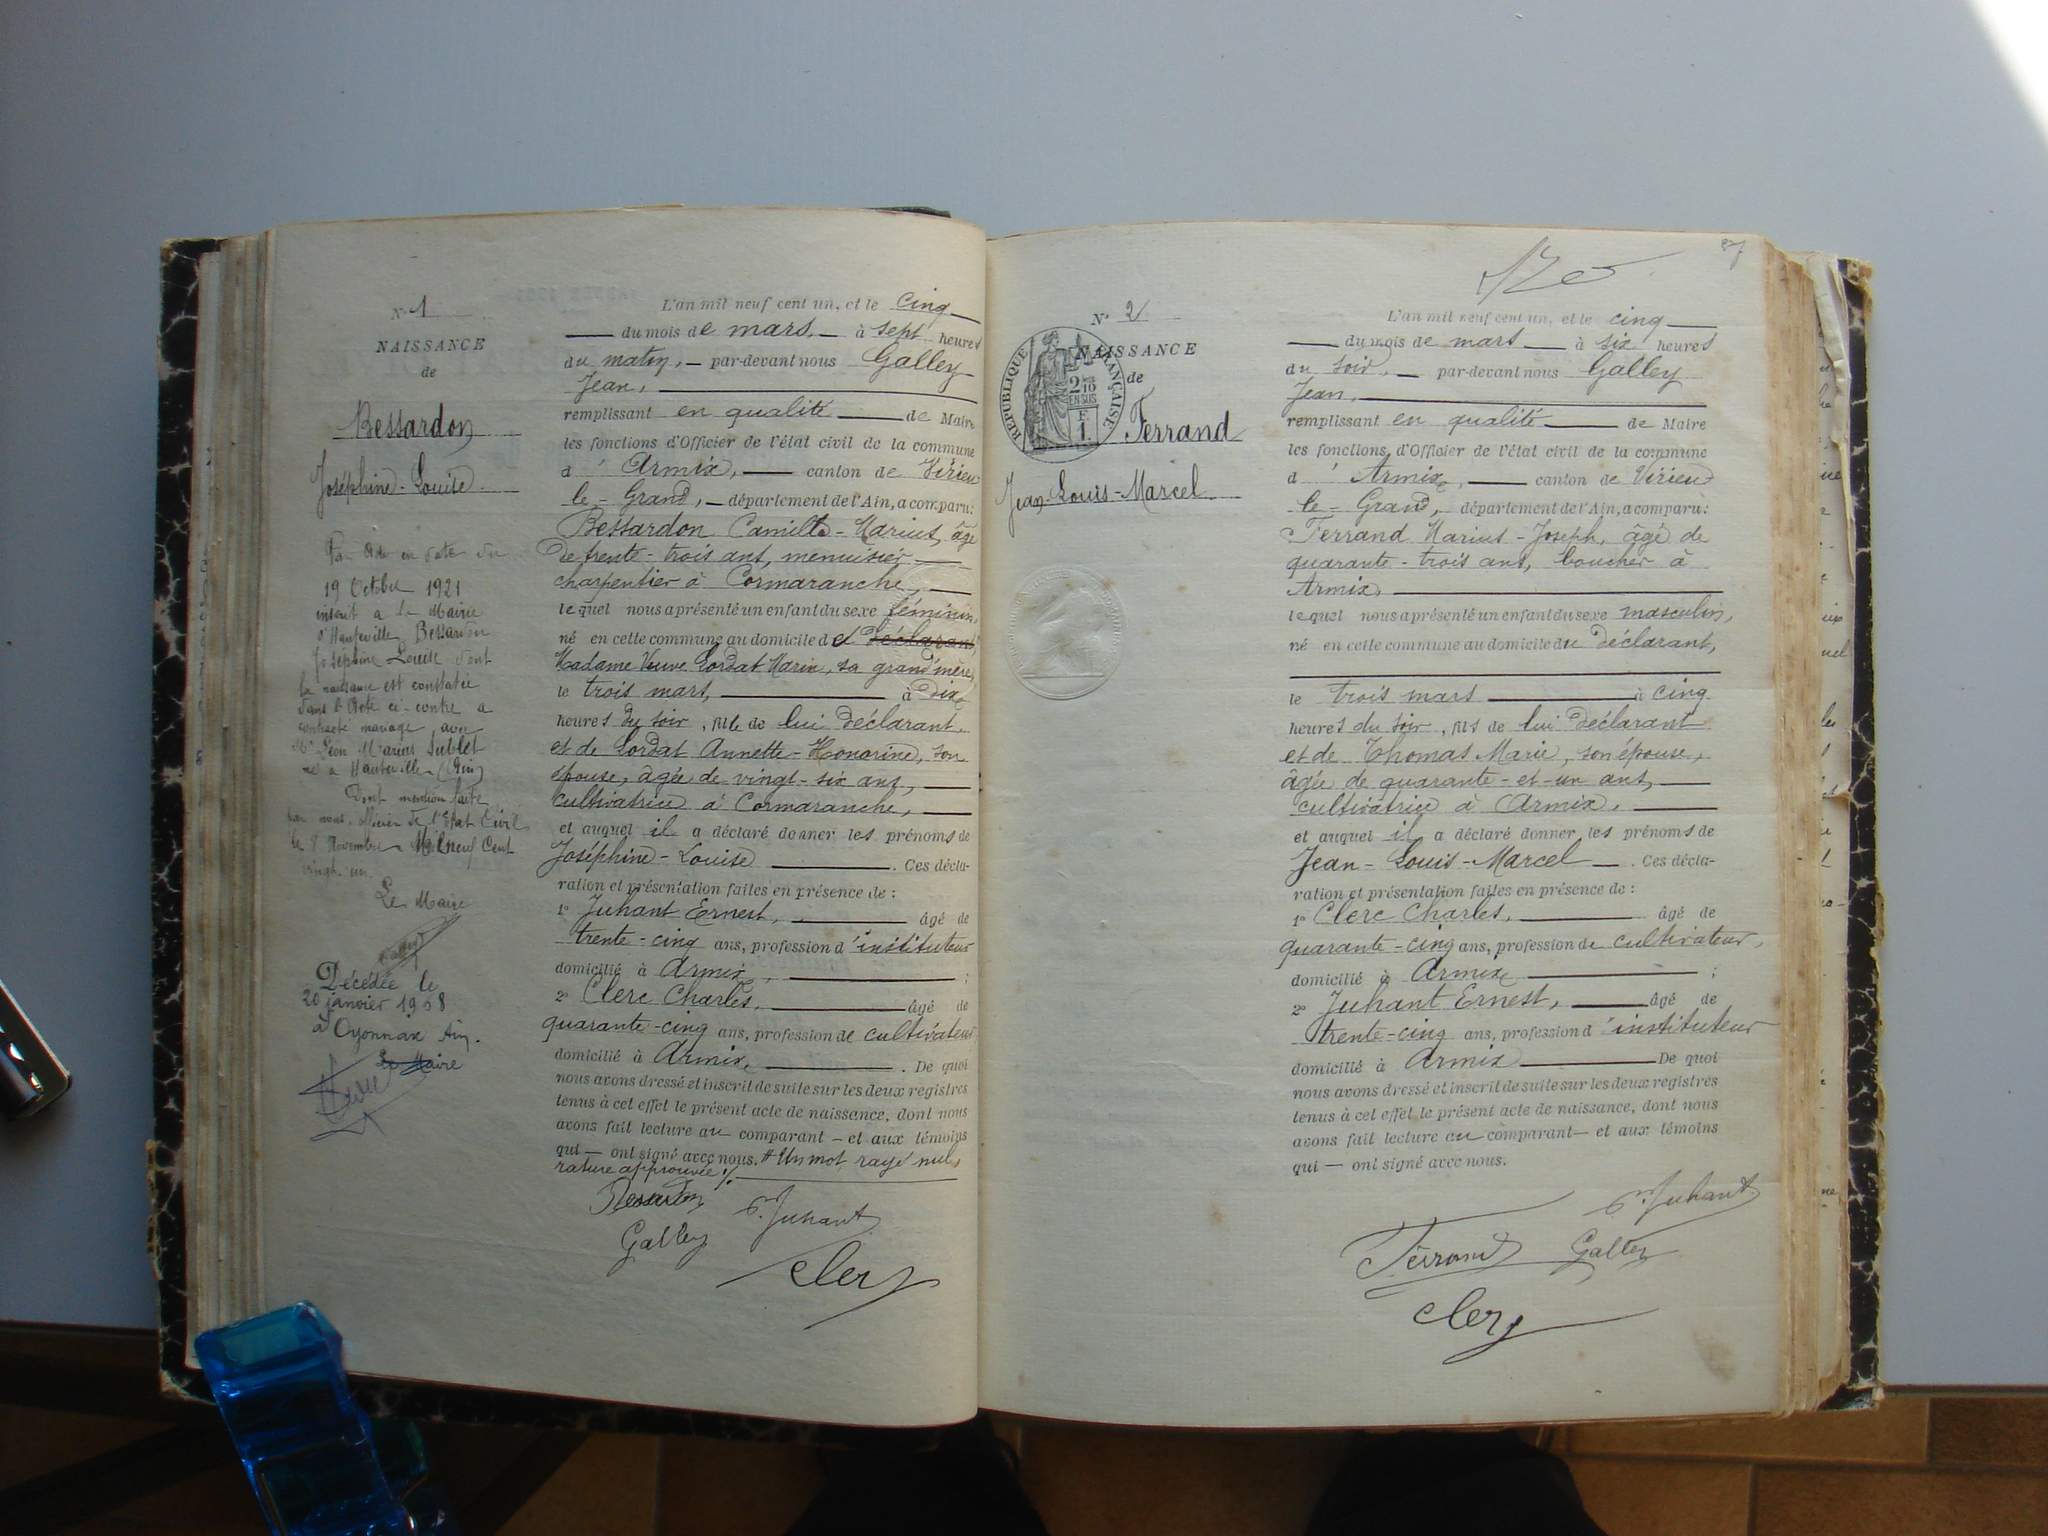 N° 1
NAISSANCE
de
Bessardon
Joséphine-Louise
Par Acte en date du
19 Octobre 1921
inscrit a la Mairie
d'Hauteville, Bessardon
Joséphine Louise dont
la naissance est constatée
dans l'Acte ci-contre a
contracté mariage avec
Mr Léon Marius Sublet
né à Hauteville (Ain)
Dont mention faite
par nous, officier de l'Etat Civil
le 8 Novembre Mil neuf Cent
vingt-un.
Le Maire
Décédée le
20 janvier 1968
à Oyonnax Ain.
Le Maire
L'an mil neuf cent un, et le cinq
du mois de mars, à sept heures
du matin, par-devant nous Galley
Jean,
remplissant en qualité de Maire
les fonctions d'Officier de l'état civil de la commune
d'Armix, canton de Virieu
le-Grand, département de l'Ain, a comparu:
Bessardon Camille-Marius, âgé
de trente-trois ans, menuisier
charpentier à Cormaranche,
lequel nous a présenté un enfant du sexe féminin,
né en cette commune au domicile de déclarant,
Madame Veuve Lordat Marin, sa grand'mère,
le trois mars, à dix
heures du soir, fille de lui déclarant,
et de Lordat Annette-Honorine, son
épouse, âgée de vingt-six ans,
cultivatrice à Cormaranche,
et auquel il a déclaré donner les prénoms de
Joséphine-Louise. Ces décla-
ration et présentation faites en présence de:
1° Juhant Ernest, âgé de
trente-cinq ans, profession d'instituteur
domicilié à Armix,;
2° Clerc Charles, âgé de
quarante-cinq ans, profession de cultivateur
domicilié à Armix,. De quoi
nous avons dressé et inscrit de suite sur les deux registres
tenus à cet effet le présent acte de naissance, dont nous
avons fait lecture au comparant - et aux témoins
qui — ont signé avec nous. # Un mot rayé nul,
rature approuvée ./.
Bessardon E. Juhant
Galley
Clerc
87
N° 2
NAISSANCE
de
RÉPUBLIQUE FRANÇAISE
2/10
EN SUS
F.
1.
Ferrand
Jean-Louis-Marcel
L'an mil neuf cent un, et le cinq
du mois de mars à six heures
du soir, par-devant nous Galley
Jean,
remplissant en qualité de Maire
les fonctions d'Officier de l'état civil de la commune
d'Armix, canton de Virieu
le-Grand, département de l'Ain, a comparu:
Ferrand Marius-Joseph, âgé de
quarante-trois ans, boucher à
Armix,
lequel nous a présenté un enfant du sexe masculin,
né en cette commune au domicile du déclarant,
le trois mars à cinq
heures du soir, fils de lui déclarant
et de Thomas Marie, son épouse,
âgée de quarante-et-un ans,
cultivatrice à Armix,
et auquel il a déclaré donner les prénoms de
Jean-Louis-Marcel. Ces décla-
ration et présentation faites en présence de:
1° Clerc Charles, âgé de
quarante-cinq ans, profession de cultivateur,
domicilié à Armix;
2° Juhant Ernest, âgé de
trente-cinq ans, profession d'instituteur
domicilié à Armix De quoi
nous avons dressé et inscrit de suite sur les deux registres
tenus à cet effet le présent acte de naissance, dont nous
avons fait lecture au comparant — et aux témoins
qui — ont signé avec nous.
E. Juhant
Ferrand Galley
Clerc